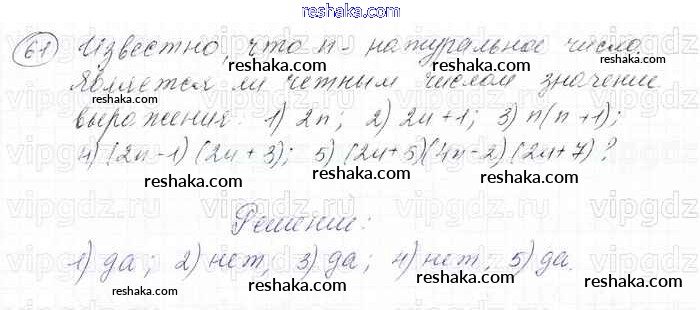 reshaka.com
61 Известно, что n - натуральное число.
reshaka.com reshaka.com
Является ли четным числом значение
выражения: 1) 2n; 2) 2n+1; 3) n(n+1);
reshaka.com reshaka.com
4) (2n-1)(2n+3); 5) (2n+5)(4n-2)(2n+7)?
reshaka.com reshaka.com
Решение:
reshaka.com
1) да; 2) нет; 3) да; 4) нет; 5) да.
reshaka.com reshaka.com reshaka.com
reshaka.com